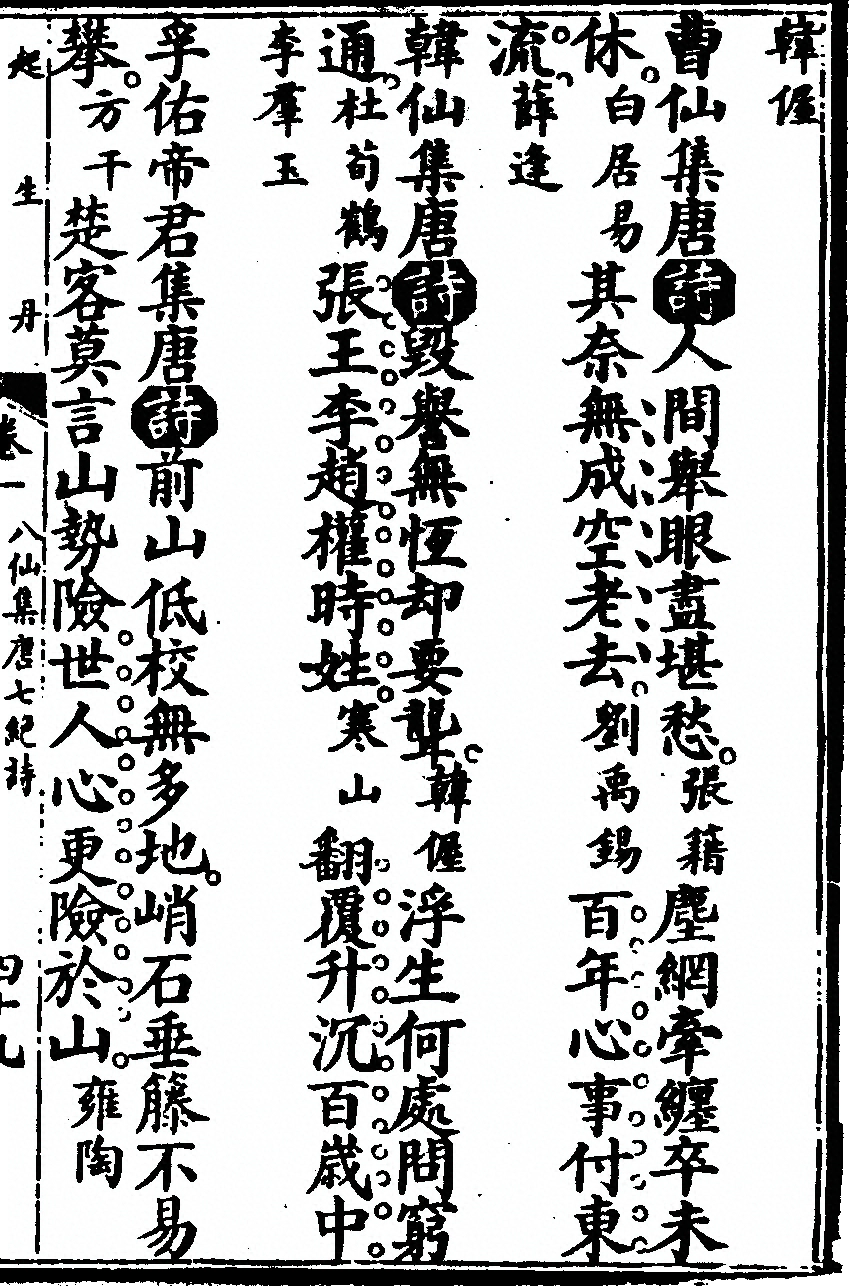 韓偓
曹仙集唐詩人間舉眼盡堪愁張籍塵網牽纏卒未
休白居易其奈無成空老去劉禹錫百年心事付東
流薛逢
韓仙集唐詩毀譽無恆却要聾韓偓浮生何處問窮
通杜荀鶴張王李趙權時姓寒山翻覆升沉百歲中
李羣玉
孚佑帝君集唐詩前山低校無多地峭石垂籐不易
攀方干楚客莫言山勢險世人心更險於山雍陶
起生丹 卷一 八仙集唐七絕詩 四十九